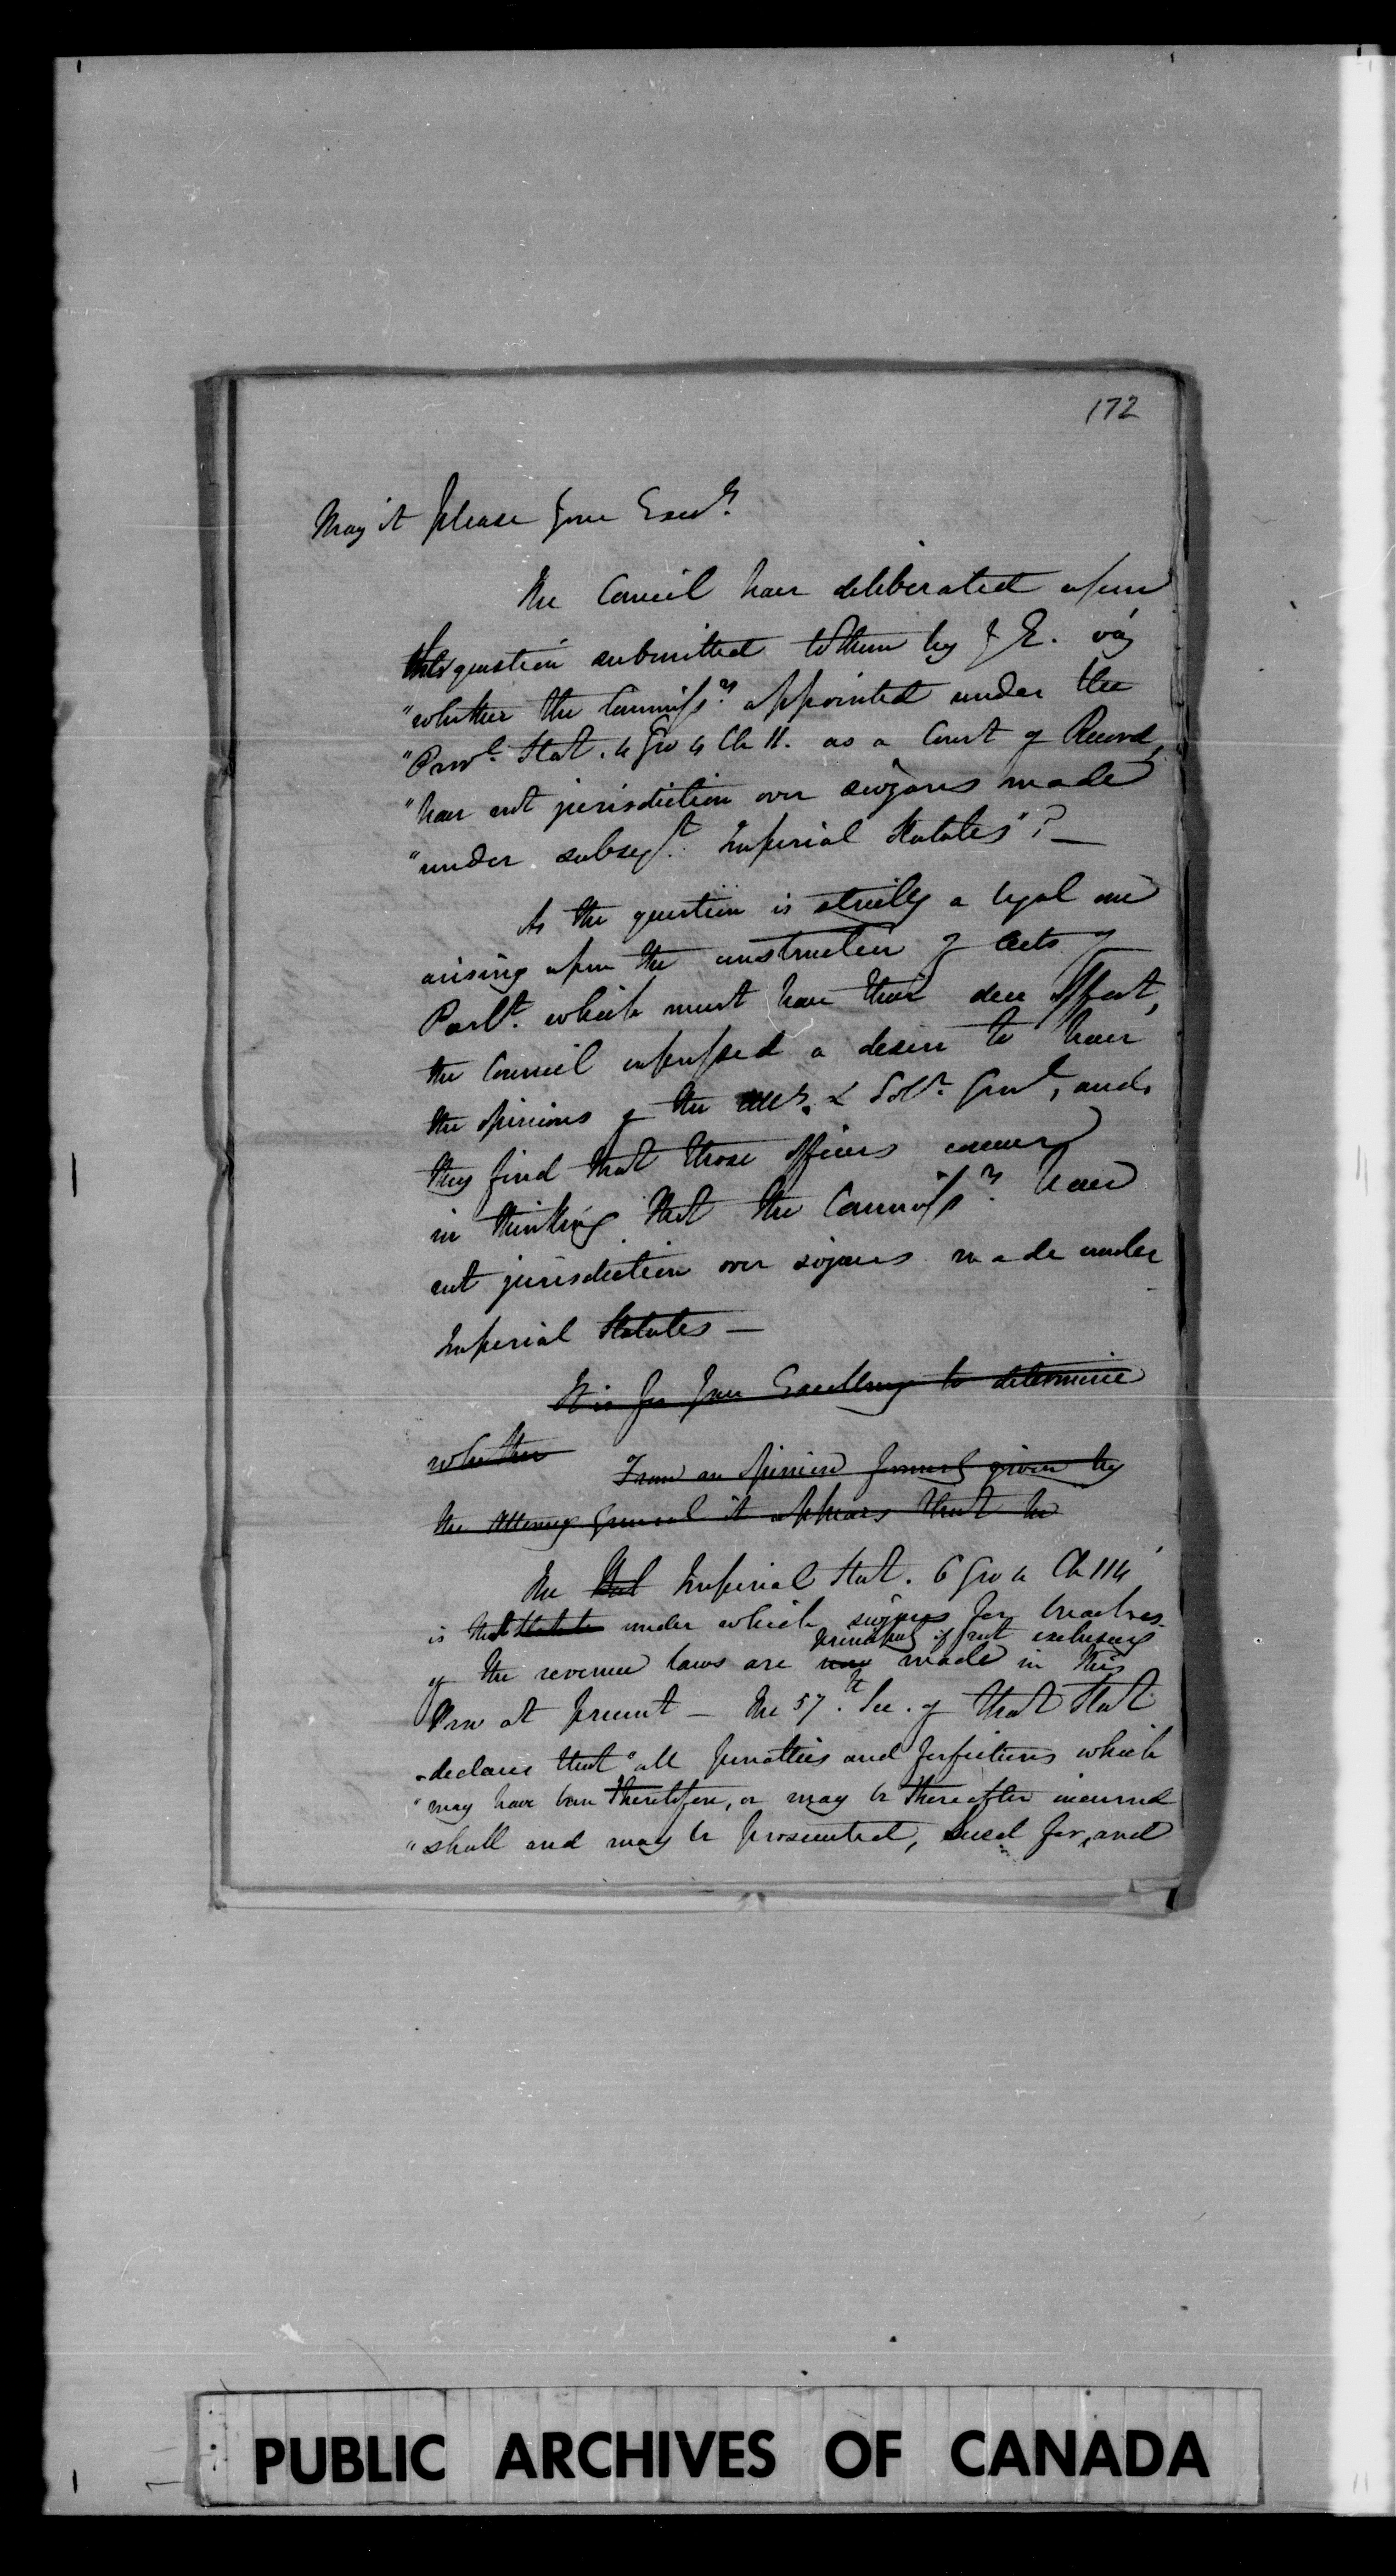 172
May it please Your Excy.
The Council have deliberated upon
the question submitted to them by Y. E. viz
"whether the Commissrs. appointed under the
"Provl. Stat. 4 Geo 4 Ch 11. as a Court of Record,
"have not jurisdiction over seizures made
"under subseqt. Imperial Statutes"? —
As the question is strictly a legal one
arising upon the construction of Acts of
Parlt. which must have their due effect,
the Council expressed a desire to have
the opinions of the Atty. & Solr. Genl, and
they find that those officers concur
in thinking that the Commissrs. have
not jurisdiction over seizures made under
Imperial Statutes —
It is for Your Excellency to determine
whether From an opinion formerly given by
the Attorney General it appears that he
The Imperial Stat. 6 Geo 4 Ch 114
is that Statute under which seizures for breaches
principally if not exclusively
of the revenue laws are now made in this
Prov at present — The 57th. Sec. of that Stat
declares that "all penalties and forfeitures which
"may have been theretofore, or may be thereafter incurred
"shall and may be prosecuted, sued for, and
PUBLIC ARCHIVES OF CANADA